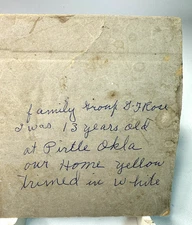 family Group G. F Rose
I was 13 years old
at Pirtle Okla
our Home yellow
trimed in white